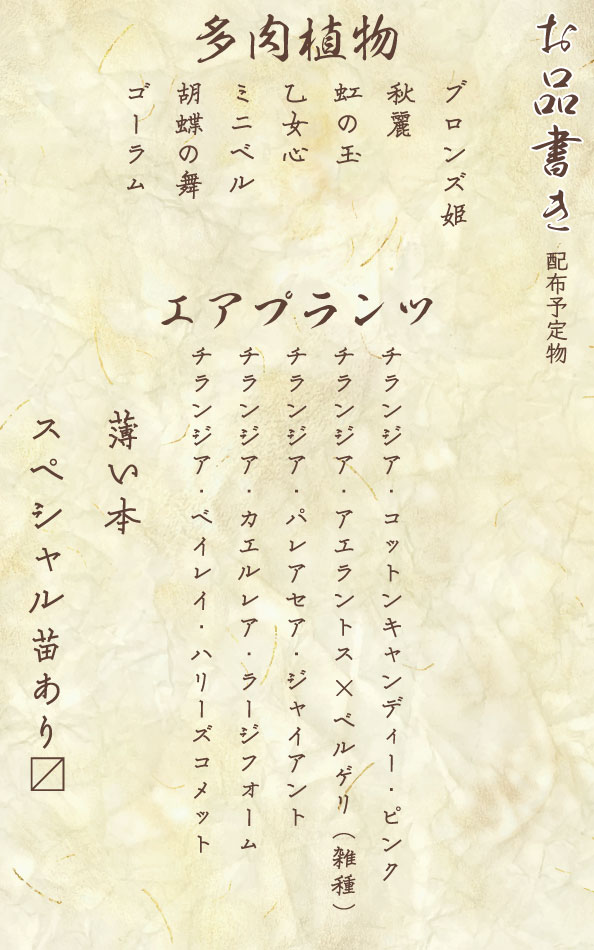 お品書き 配布予定物
多肉植物
ブロンズ姫
秋麗
虹の玉
乙女心
ミニベル
胡蝶の舞
ゴーラム
エアプランツ
チランジア・コットンキャンディー・ピンク
チランジア・アエラントス×ベルゲリ(雑種)
チランジア・パレアセア・ジャイアント
チランジア・カエルレア・ラージフォーム
チランジア・ベイレイ・ハリーズコメット
薄い本
スペシャル苗あり〼